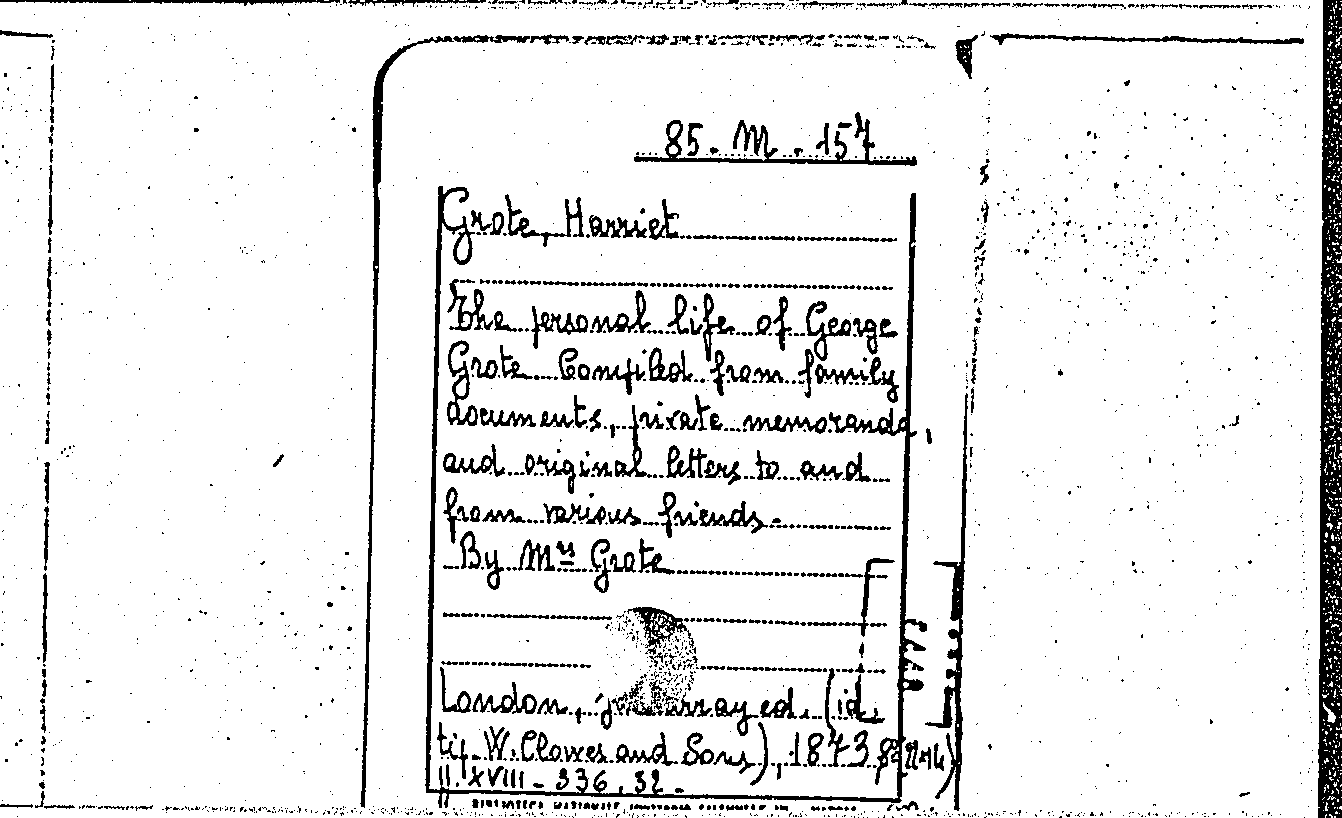 85. M. 157
Grote, Harriet
The personal life of George
Grote Compiled from family
documents, private memoranda,
and original letters to and
from various friends.
By Mrs Grote
London, ed. (id.
tip. W. Clowes and Sons), 1873, 8°
pp. XVIII - 336, 32.